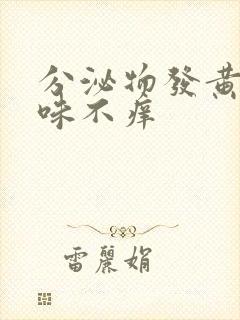 分泌物發黃
味不痒
雷麗娟